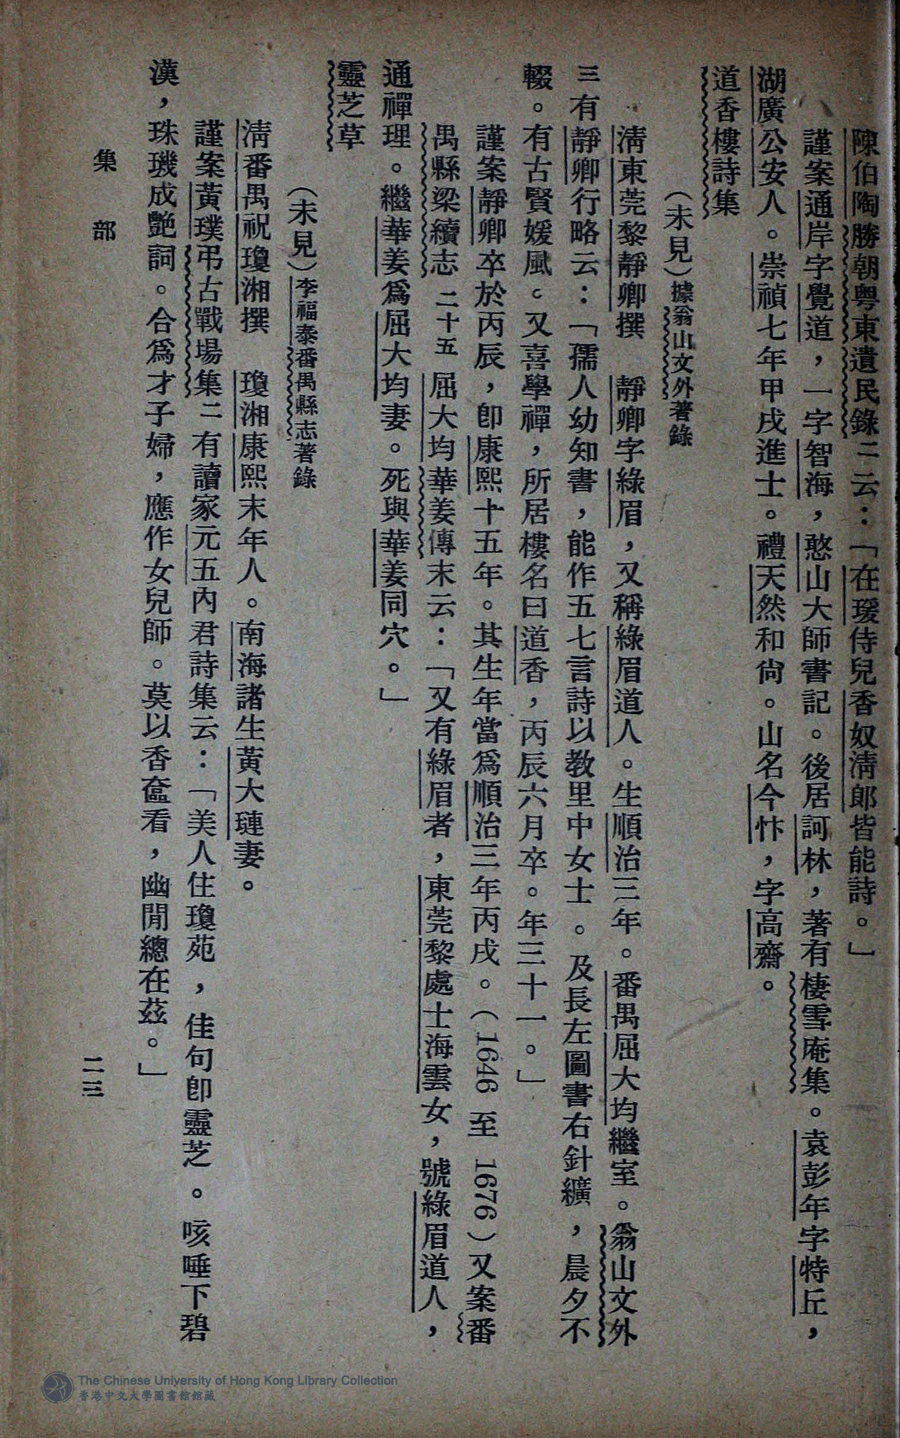 陳伯陶勝朝粵東遺民錄三云：「在璦侍兒香奴淸郞皆能詩。」
謹案通岸字覺道，一字智海，憨山大師書記。後居訶林，著有棲雪庵集。袁彭年字特丘，
湖廣公安人。崇禎七年甲戌進士。禮天然和尙。山名今忭，字高齋。
道香樓詩集
（未見）據翁山文外著錄
淸東莞黎靜卿撰　靜卿字綠眉，又稱綠眉道人。生順治三年。番禺屈大均繼室。翁山文外
三有靜卿行略云：「孺人幼知書，能作五七言詩以敎里中女士。及長左圖書右針纊，晨夕不
輟。有古賢媛風。又喜學禪，所居樓名曰道香，丙辰六月卒。年三十一。」
謹案靜卿卒於丙辰，卽康熙十五年。其生年當爲順治三年丙戌。（1646 至 1676）又案番
禺縣梁續志二十五 屈大均華姜傳末云：「又有綠眉者，東莞黎處士海雲女，號綠眉道人，
通禪理。繼華姜爲屈大均妻。死與華姜同穴。」
靈芝草
（未見）李福泰番禺縣志著錄
淸番禺祝瓊湘撰　瓊湘康熙末年人。南海諸生黃大㻞妻。
謹案黃璞弔古戰場集二有讀家元五內君詩集云：「美人住瓊苑，佳句卽靈芝。咳唾下碧
漢，珠璣成艷詞。合爲才子婦，應作女兒師。莫以香奩看，幽閒總在茲。」
集部
二三
The Chinese University of Hong Kong Library Collection
香港中文大學圖書館館藏